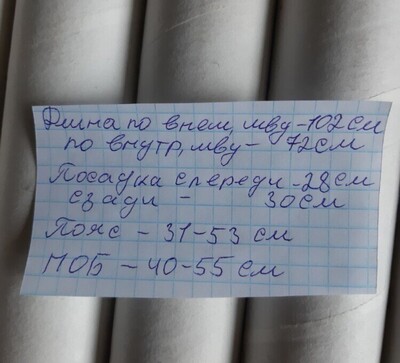 Длина по внеш, шву-102см
по внутр, шву- 72см
Посадка спереди-28см
сзади - 30см
Пояс - 31-53 см
ПОБ - 40-55 см